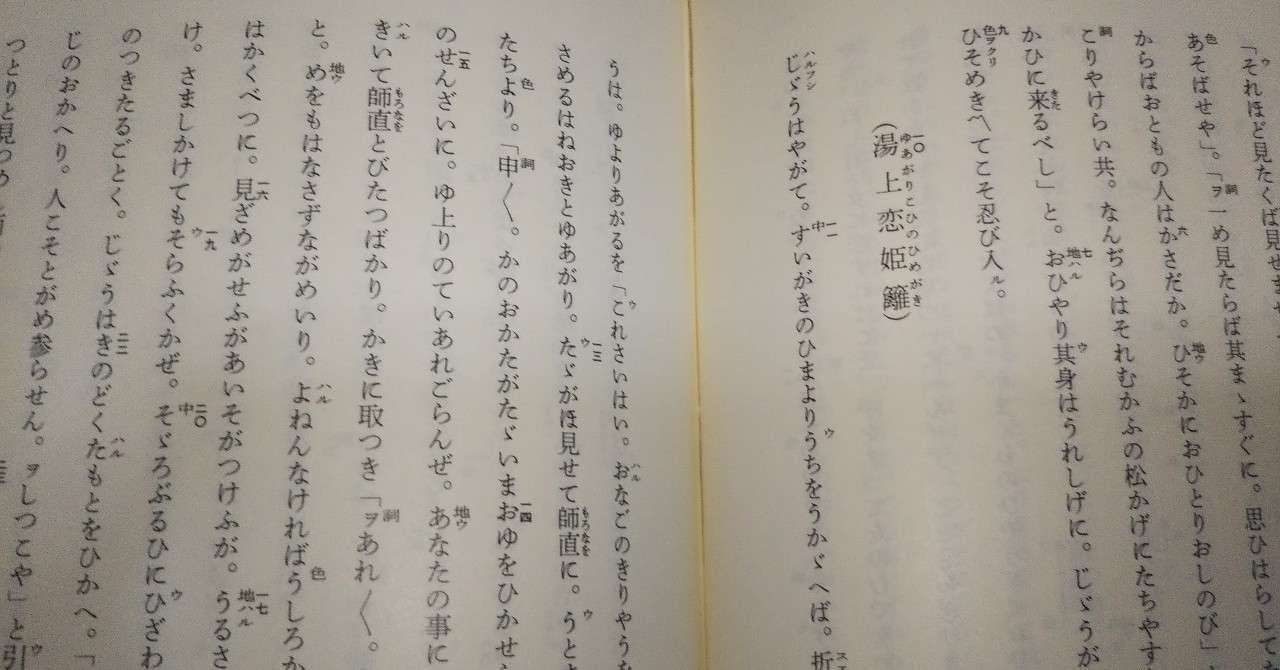 「それほど見たくば見せませ
あそばせや」。「ヲ一め見たらば其まゝすぐに。思ひはらして
からばおともの人はかさだか。ひそかにおひとりおしのび」
こりやけらい共。なんぢらはそれむかふの松かげにたちやす
かひに来るべし」と。おひやり其身はうれしげに。じゞうが
ひそめき〳〵てこそ忍び入ル。
（湯上恋姫籬）
じゞうはやがて。すいがきのひまよりうちをうかゞへば。折
うは。ゆよりあがるを「これさいはい。おなごのきりやうを
さめるはねおきとゆあがり。たゞがほ見せて師直に。うとま
たちより。「申〳〵。かのおかたがたゞいまおゆをひかせら
のせんざいに。ゆ上りのていあれごらんぜ。あなたの事に
きいて師直とびたつばかり。かきに取つき「ヲあれ〳〵。
と。めをもはなさずながめいり。よねんなければうしろか
はかくべつに。見ざめがせふがあいそがつけふが。うるさ
け。さましかけてもそらふくかぜ。そゞろぶるひにひざわ
のつきたるごとく。じゞうはきのどくたもとをひかへ。「
じのおかへり。人こそとがめ参らせん。ヲしつこや」と引
つとりと見つめ